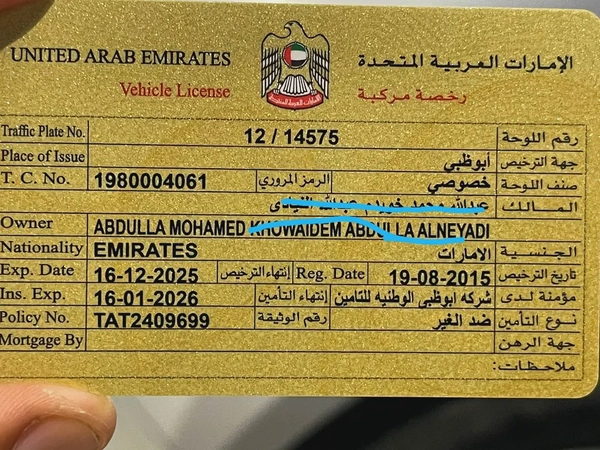 UNITED ARAB EMIRATES الإمارات العربية المتحدة
Vehicle License رخصة مركبة
Traffic Plate No. 12 / 14575 رقم اللوحة
Place of Issue أبوظبي جهة الترخيص
T. C. No. 1980004061 الرمز المروري خصوصي صنف اللوحة
عبدالله محمد خويدم عبدالله المالك
Owner ABDULLA MOHAMED KHOWAIDEM ABDULLA ALNEYADI
Nationality EMIRATES الامارات الجنسية
Exp. Date 16-12-2025 إنتهاء الترخيص Reg. Date 19-08-2015 تاريخ الترخيص
Ins. Exp. 16-01-2026 إنتهاء التأمين شركه ابوظبي الوطنيه للتامين مؤمنة لدى
Policy No. TAT2409699 رقم الوثيقة ضد الغير نوع التأمين
Mortgage By جهة الرهن
ملاحظات: